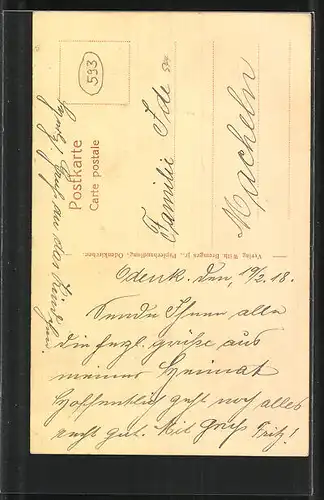 593
Postkarte
Carte postale
Familie Ide
Macheln
Verlag Wilh. Brenges jr., Papierhandlung, Odenkirchen.
Odenk. den, 19/2. 18.
Sende Ihnen alle
die herzl. grüße aus
meiner Heimat
Hoffentlich geht noch alles
recht gut. Mit Gruß Fritz!
Gruß an das